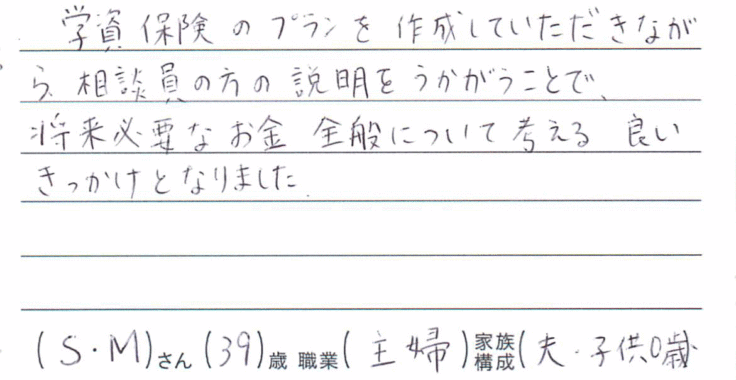 学資保険のプランを作成していただきなが
ら、相談員の方の説明をうかがうことで、
将来必要なお金全般について考える良い
きっかけとなりました.
(S・M)さん(39)歳 職業(主婦)家族構成(夫・子供0歳